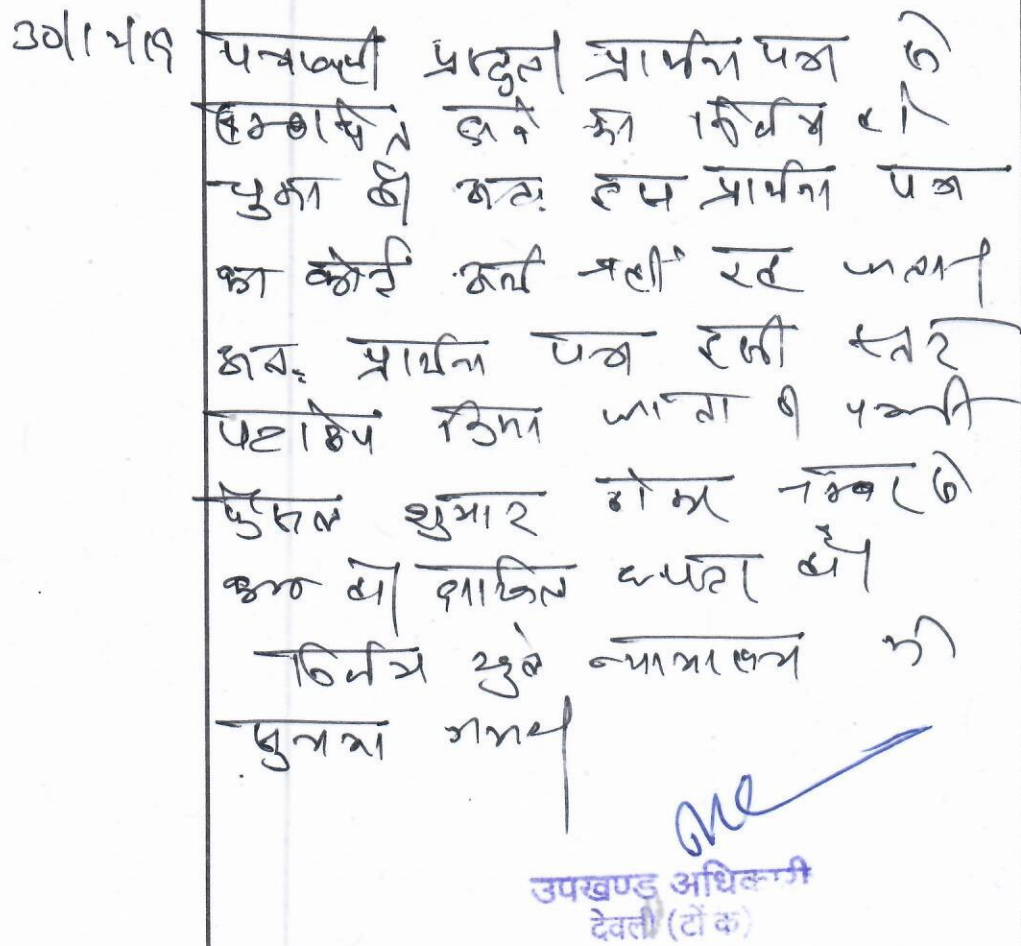 30/12/19 पत्रावली प्रस्तुत प्रार्थना पत्र से
सम्बन्धित का निर्णय हो
चुका है अतः इस प्रार्थना पत्र
का कोई अर्थ नहीं रह जाता।
अतः प्रार्थना पत्र इसी स्तर
पर किया जाता है पत्रावली
फैसल शुमार होकर नम्बर से
कम हो दाखिल दफ्तर हो।
निर्णय खुले न्यायालय में
सुनाया गया।
उपखण्ड अधिकारी
देवली (टोंक)